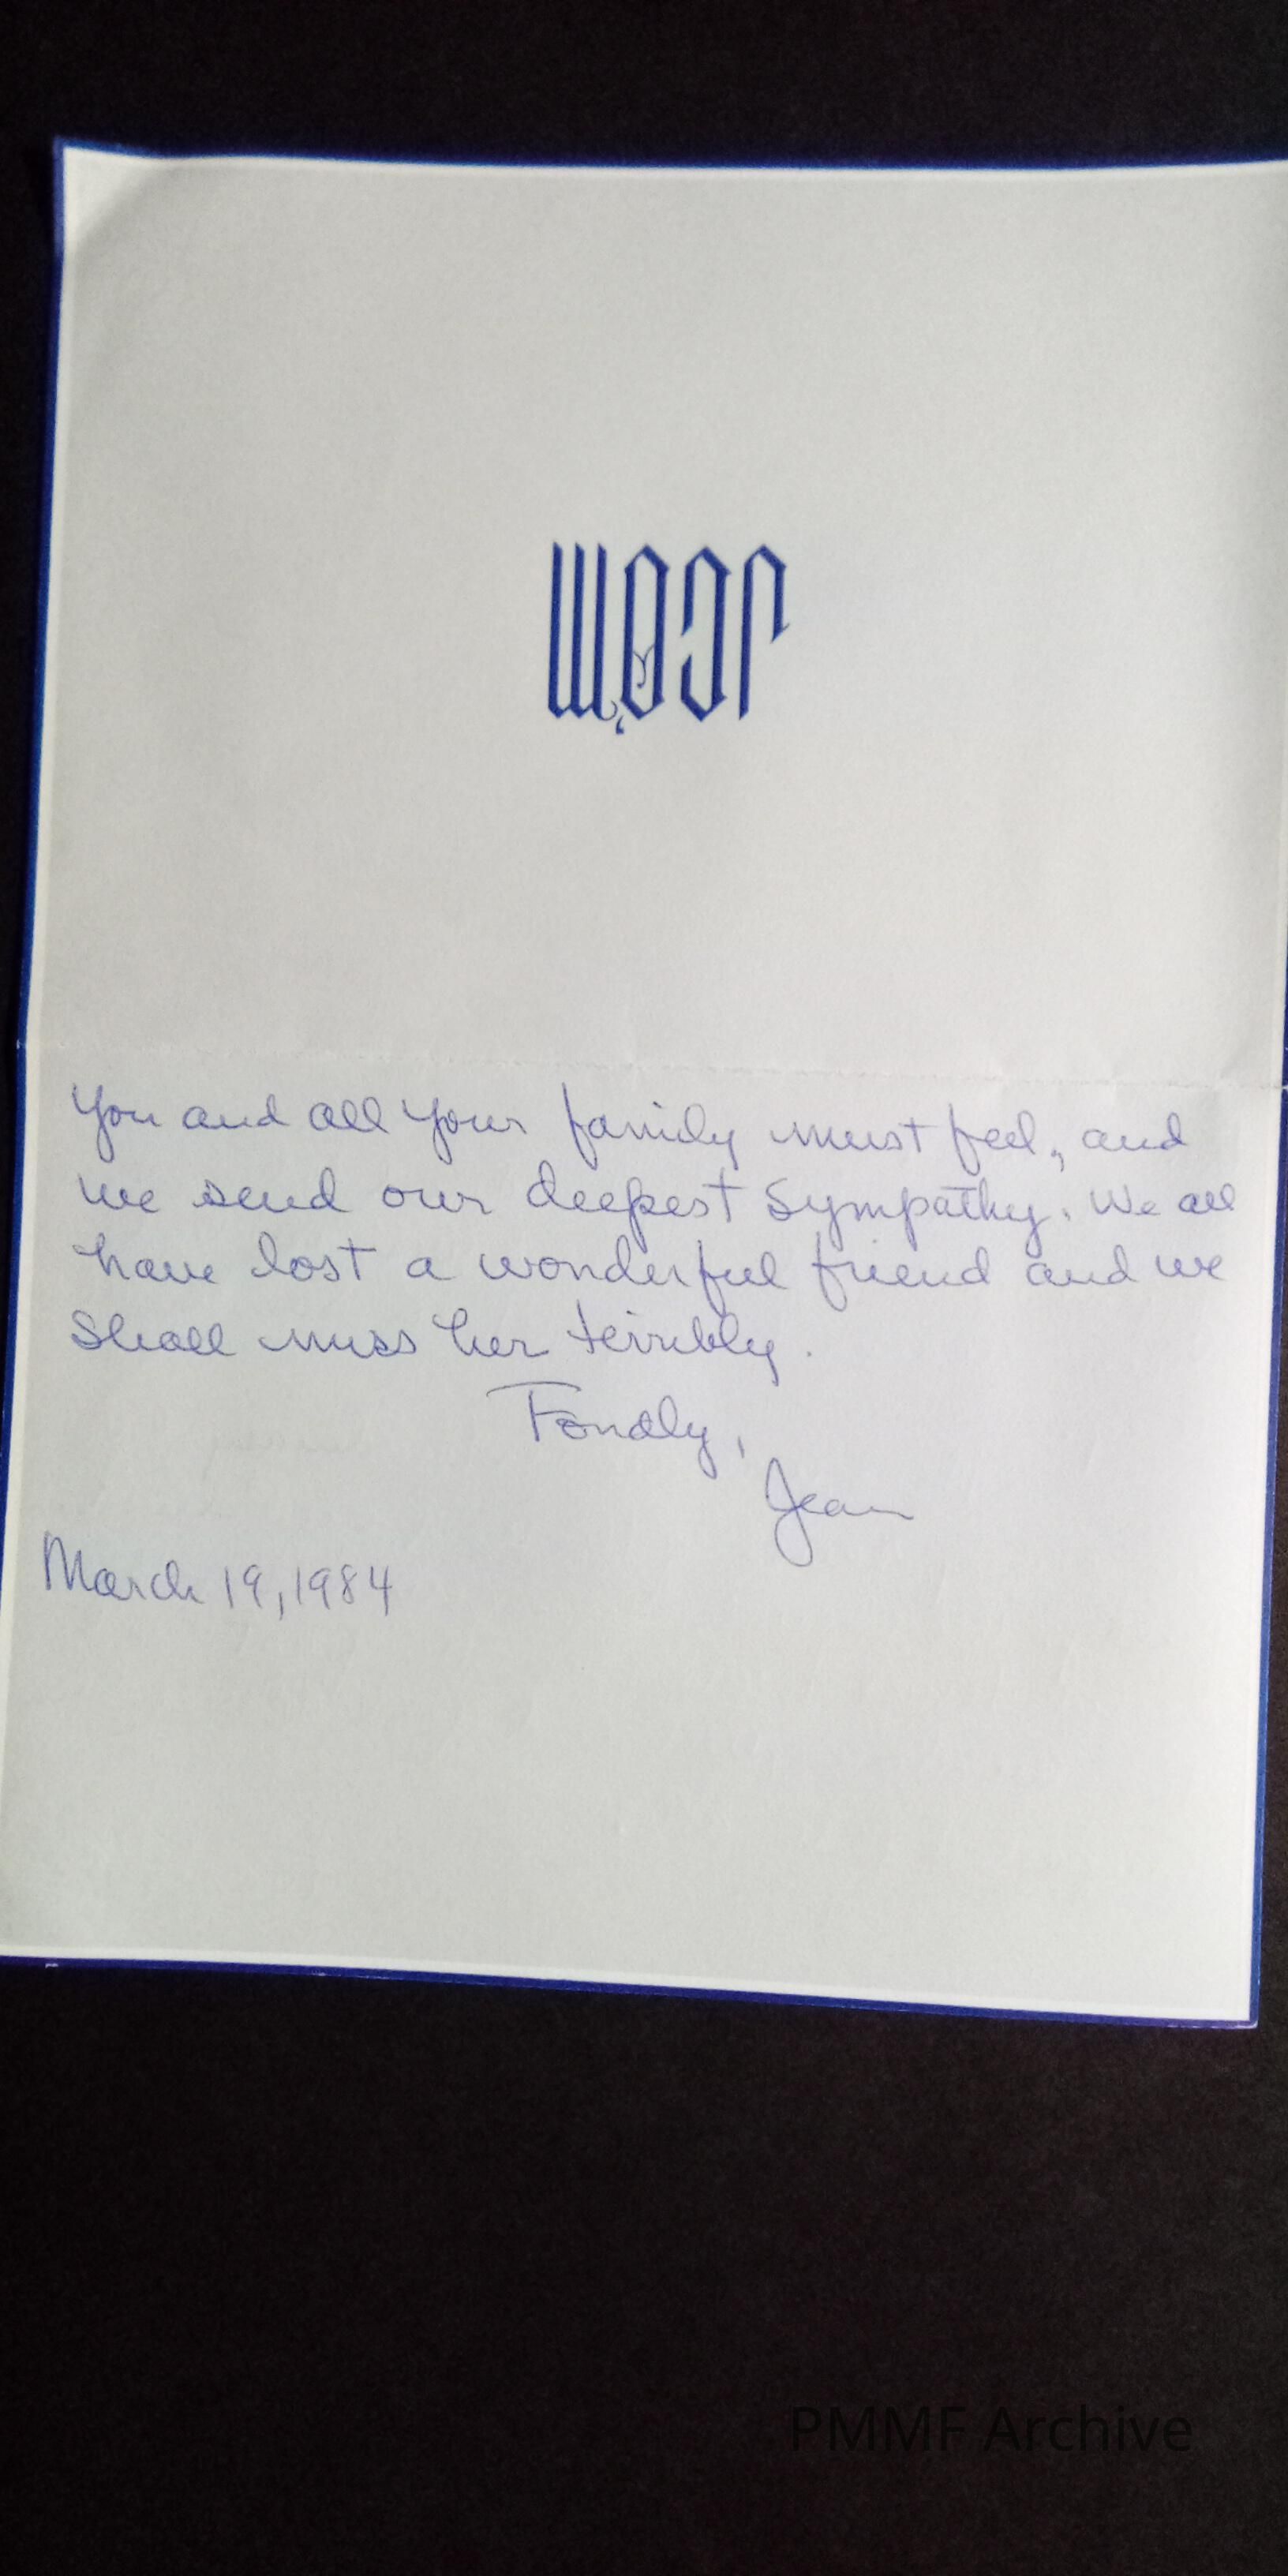 You and all your family must feel, and
we send our deepest sympathy. We all
have lost a wonderful friend and we
shall miss her terribly.
Fondly,
Jean
March 19, 1984
PMMF Archive